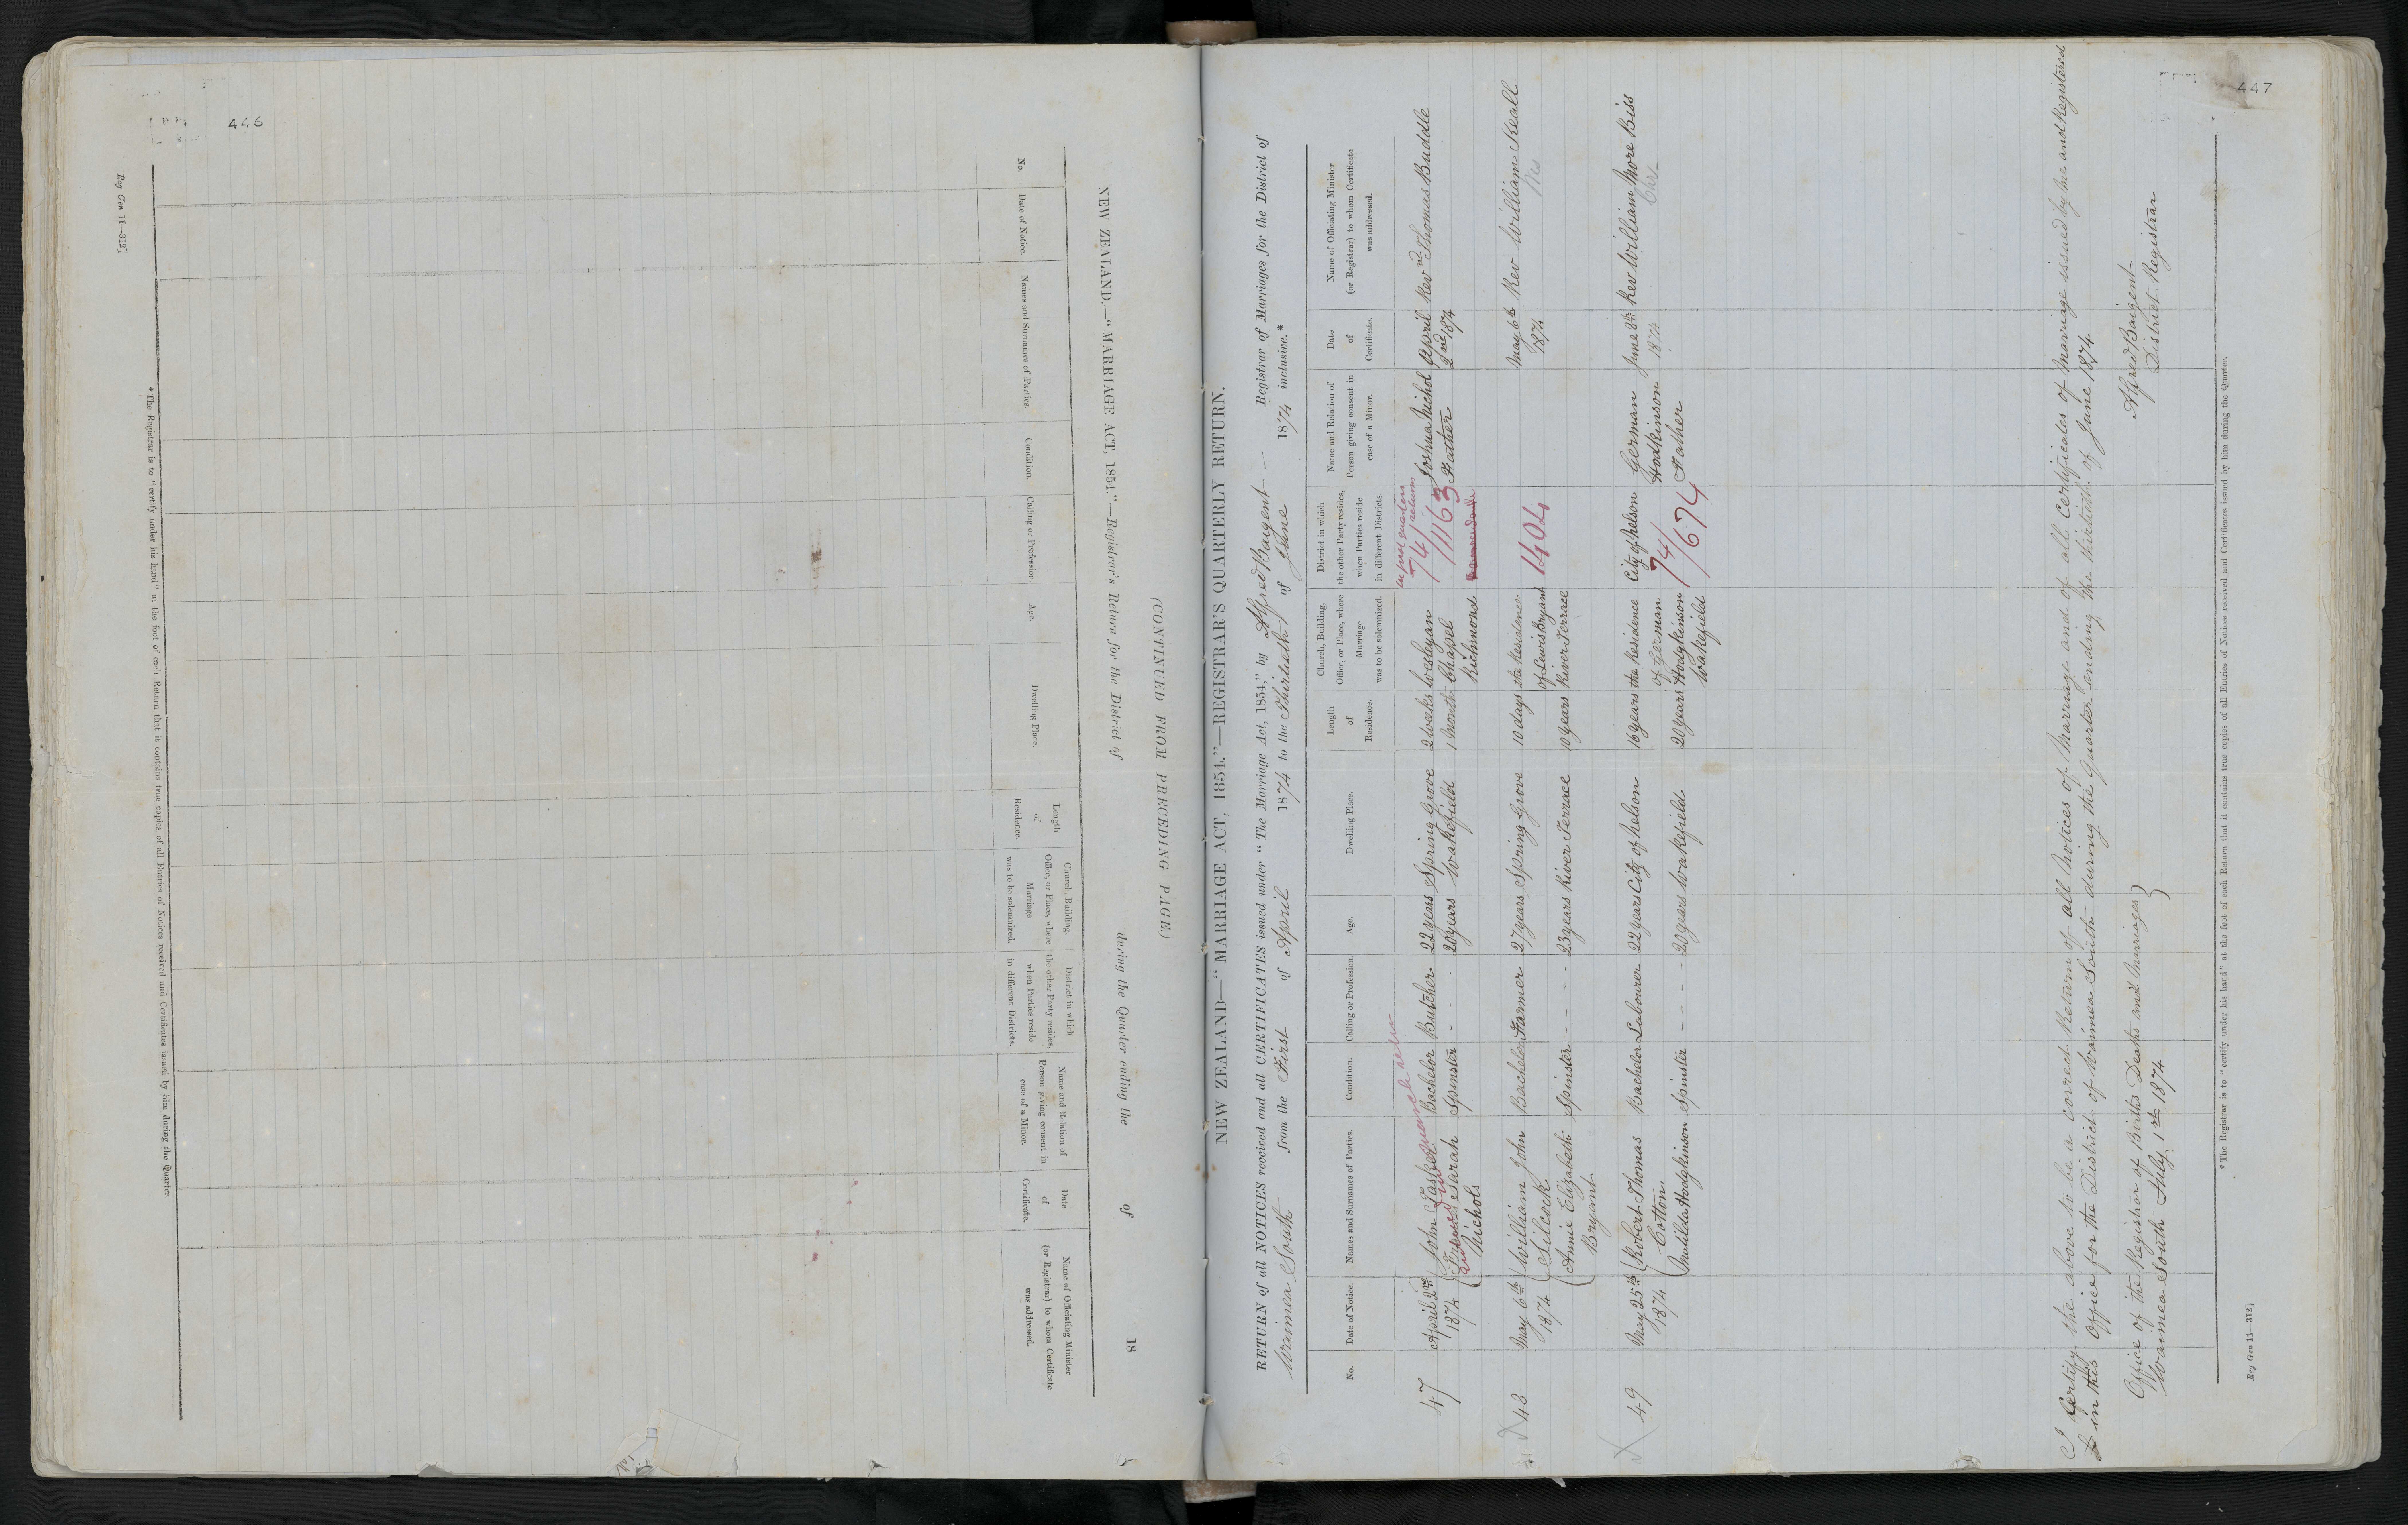 446
Reg Gen 11—312]
NEW ZEALAND.—"MARRIAGE ACT, 1854."—Registrar's Return for the District of during the Quarter ending the of 18
(CONTINUED FROM PRECEDING PAGE.)
No.
Date of Notice.
Names and Surnames of Parties.
Condition.
Calling or Profession.
Age.
Dwelling Place.
Length
of
Residence.
Church, Building,
Office, or Place, where
Marriage
was to be solemnized.
District in which
the other Party resides,
when Parties reside
in different Districts.
Name and Relation of
Person giving consent in
case of a Minor.
Date
of
Certificate.
Name of Officiating Minister
(or Registrar) to whom Certificate
was addressed.
* The Registrar is to "certify under his hand" at the foot of each Return that it contains true copies of all Entries of Notices received and Certificates issued by him during the Quarter.
447
NEW ZEALAND—"MARRIAGE ACT, 1854."—REGISTRAR'S QUARTERLY RETURN.
RETURN of all NOTICES received and all CERTIFICATES issued under "The Marriage Act, 1854," by Alfred Baigent Registrar of Marriages for the District of
Waimea South from the First of April 1874 to the Thirtieth of June 1874 inclusive.*
No.
Date of Notice.
Names and Surnames of Parties.
Condition.
Calling or Profession.
Age.
Dwelling Place.
Length
of
Residence.
Church, Building,
Office, or Place, where
Marriage
was to be solemnized.
District in which
the other Party resides,
when Parties reside
in different Districts.
Name and Relation of
Person giving consent in
case of a Minor.
Date
of
Certificate.
Name of Officiating Minister
(or Registrar) to whom Certificate
was addressed.
47 April 2nd John Tasker Bachelor Butcher 22 years Spring Grove 2 weeks Wesleyan 74/1163 Joshua Nichol April Revnd Thomas Buddle
1874 Sarah Spinster - - - 20 years Wakefield 1 month Chapel Father 2nd 1874
Nichols Richmond
48 May 6th William John Bachelor Farmer 27 years Spring Grove 10 days the Residence 1404 May 6th Rev William Keall
1874 Silcock of Lewis Bryant 1874 Wes
Annie Elizabeth Spinster - - - 23 years River Terrace 10 years River Terrace
Bryant
49 May 25th Robert Thomas Bachelor Labourer 22 years City of Nelson 16 years the Residence City of Nelson German June 8th Rev William More Biss
1874 Cotton of German 74/674 Hodkinson 1874
Matilda Hodgkinson Spinster - - - 20 years Wakefield 20 years Hodgkinson Father
Wakefield
I Certify the above to be a correct Return of all Notices of Marriage and of all Certificates of Marriage issued by me and Registered
in this Office for the District of Waimea South during the Quarter ending the thirtieth of June 1874
Office of the Registrar of Births Deaths and Marriages Alfred Baigent
Waimea South July 1st 1874 District Registrar
* The Registrar is to "certify under his hand" at the foot of each Return that it contains true copies of all Entries of Notices received and Certificates issued by him during the Quarter.
Reg Gen 11—312]